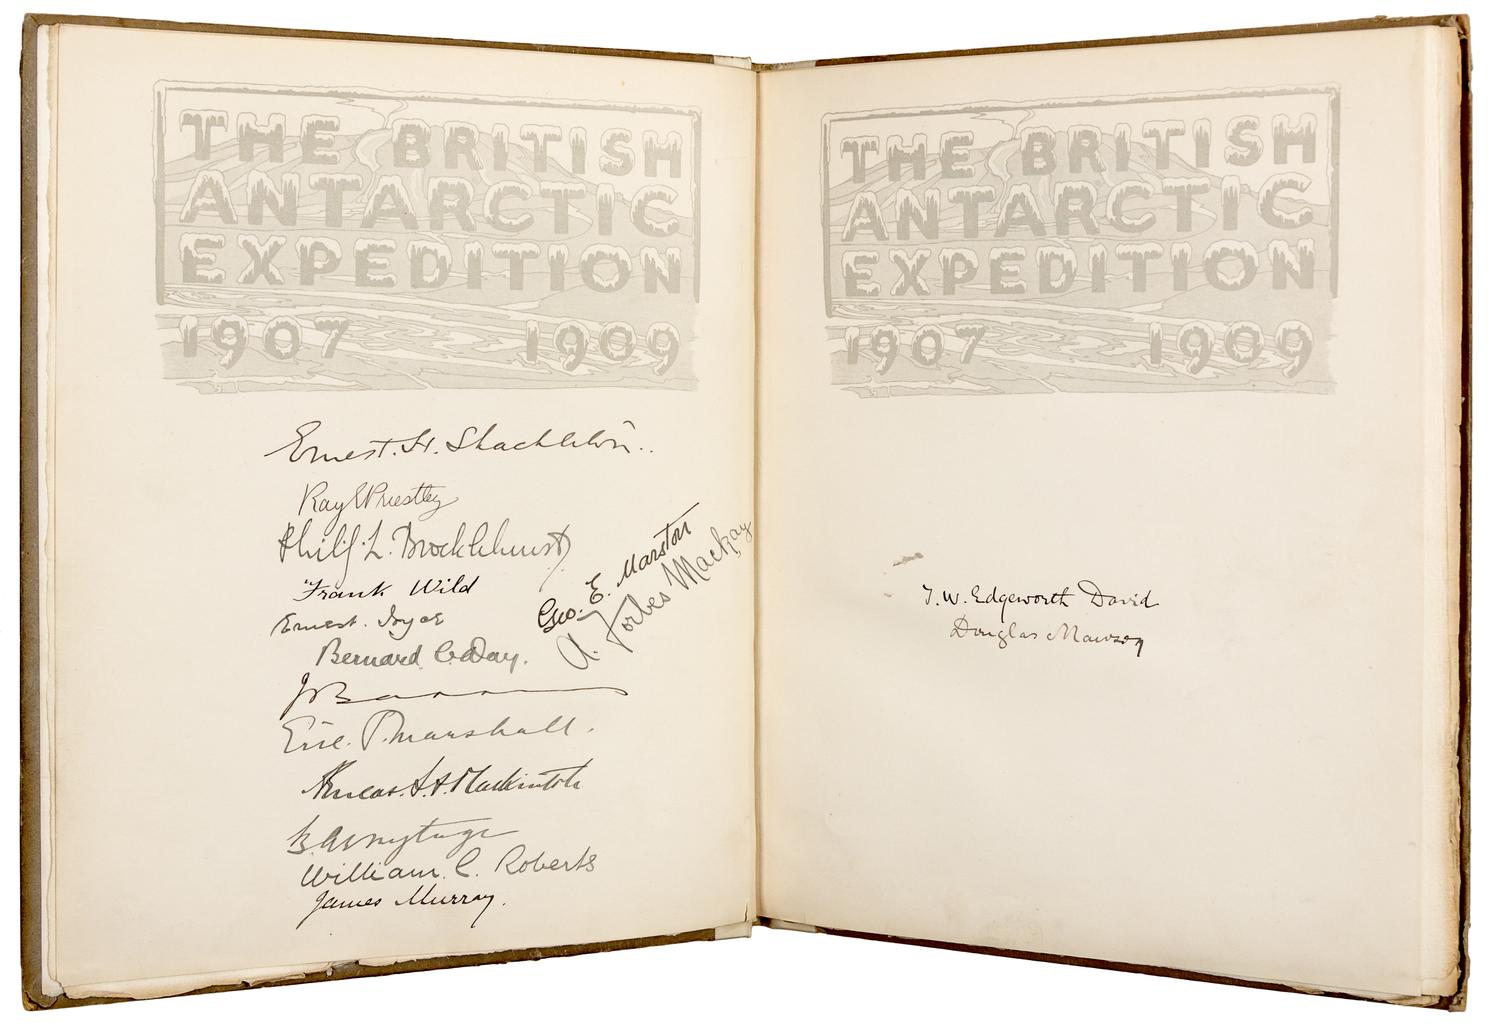 THE BRITISH
ANTARCTIC
EXPEDITION
1907 1909
Ernest. H. Shackleton..
Ray E Priestley
Philip L. Brocklehurst
Frank Wild
Ernest. Joyce
Geo. E. Marston
A. Forbes Mackay
Bernard C. Day.
Eric. P. Marshall.
Aeneas. L. A. Mackintosh
B. Armytage
William. C. Roberts
James Murray.
THE BRITISH
ANTARCTIC
EXPEDITION
1907 1909
T. W. Edgeworth David
Douglas Mawson